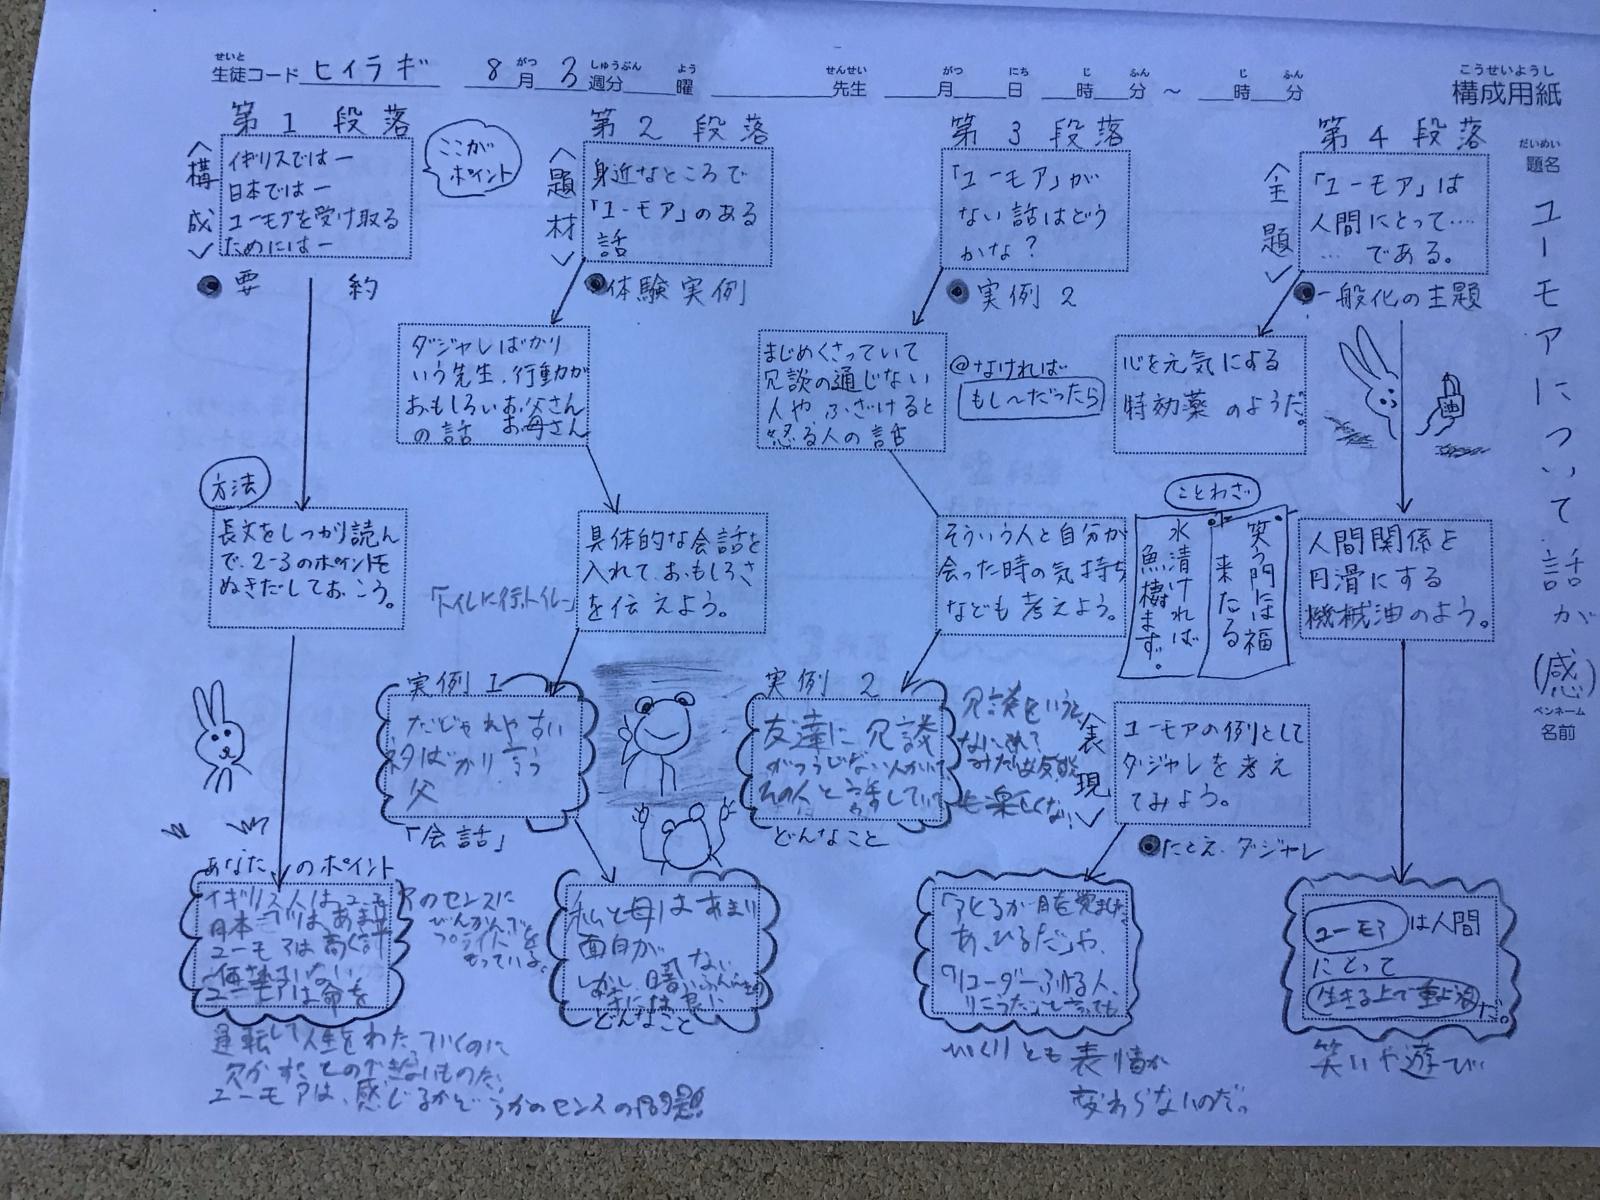 せいと がつ しゅうぶん よう せんせい がつ にち じ ふん じ ふん
生徒コード ヒイラギ 8月3週分 曜 先生 月 日 時 分 ～ 時 分
こうせいようし
構成用紙
だいめい
題名
ユーモアについて話が
(感)
ペンネーム
名前
第1段落
＜構成＞
イギリスでは―
日本では―
ユーモアを受け取る
ためには―
ここが
ポイント
●要約
方法
長文をしっかり読ん
で、2-3のポイントを
ぬきだしておこう。
あなたのポイント
イギリス人はユーモアのセンスに
びんかんで
プライドを
もっている。
日本ではあまり
ユーモアは高く評
価されていない
ユーモアは命を
運転して人生をわたっていくのに
欠かすことのできないものだ。
ユーモアは、感じるかどうかのセンスの問題
第2段落
＜題材＞
身近なところで
「ユーモア」のある
話
●体験実例
ダジャレばかり
いう先生、行動が
おもしろいお父さん
お母さん
の話
具体的な会話を
入れて、おもしろさ
を伝えよう。
「トイレに行っトイレー」
実例1
だじゃれや古い
ネタばかり言う
父
「会話」
私と母はあまり
面白が
らない
しかし、暗いふん
どんなこと
第3段落
「ユーモア」が
ない話はどう
かな？
●実例2
まじめくさっていて
冗談の通じない
人や ふざけると
怒る人の話
@なければ
もし～だったら
そういう人と自分が
会った時の気持ち
なども考えよう。
実例2
友達に冗談
がつうじない人がいて
その人と話していて
どんなこと
冗談をいうと
も楽しくない
第4段落
＜主題＞
「ユーモア」は
人間にとって‥‥
‥‥である。
●一般化の主題
心を元気にする
特効薬のようだ。
ことわざ
笑う門には福
来たる
水清ければ
魚棲まず。
人間関係を
円滑にする
機械油のよう。
油
＜表現＞
ユーモアの例として
ダジャレを考え
てみよう。
●たとえ・ダジャレ
「アヒルが目を覚ました。
あ、ひるだ」や、
「リコーダーふける人、
りこうだ」と言っても
ぴくりとも表情が
変わらないのだ。
ユーモアは人間
にとって
生きる上で重よう だ。
笑いや遊び